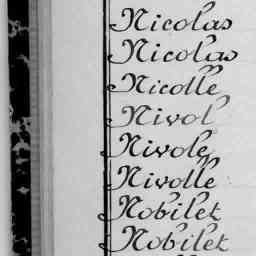 Nicolas
Nicolas
Nicolle
Nivol
Nivole
Nivolle
Nobilet
Nobilet